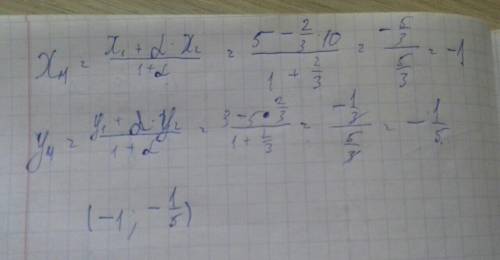 x_M = (x₁ + λ · x₂)/(1+λ) = (5 - 2/3 · 10)/(1 + 2/3) = (-5/3)/(5/3) = -1
y_M = (y₁ + λ · y₂)/(1+λ) = (3 - 5 · 2/3)/(1 + 2/3) = (-1/3)/(5/3) = -1/5
(-1; -1/5)